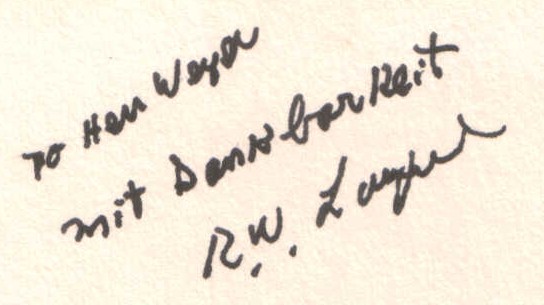 To Herr Weyer
mit Dankbarkeit
R.W.